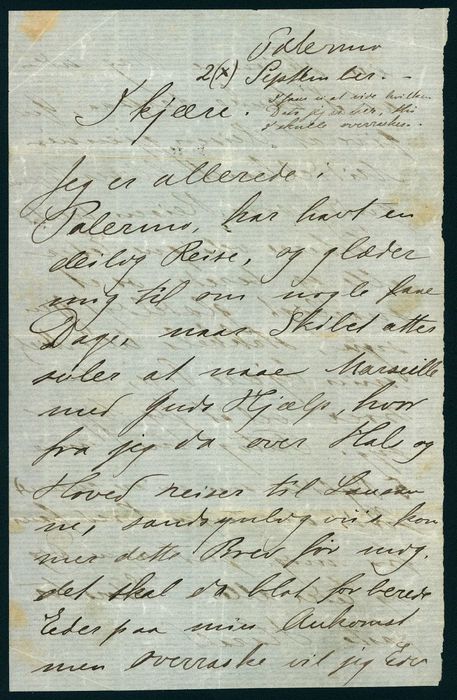 Palermo
2(x) September. -
I kjære.
I faae ei at vide hvilken
Dag jeg reiser, thi
I skulle overraskes.
Jeg er allerede i
Palermo, har havt en
deilig Reise, og glæder
mig til om nogle faae
Dage, naar Skibet atter
seiler at naae Marseille
med Guds Hjælp, hvor
fra jeg da over Hals og
Hoved reiser til Lausan
ne, sandsynligviis kom
mer dette Brev før mig.
det skal da blot forberede
Eder paa min Ankomst
men overraske vil jeg Eder